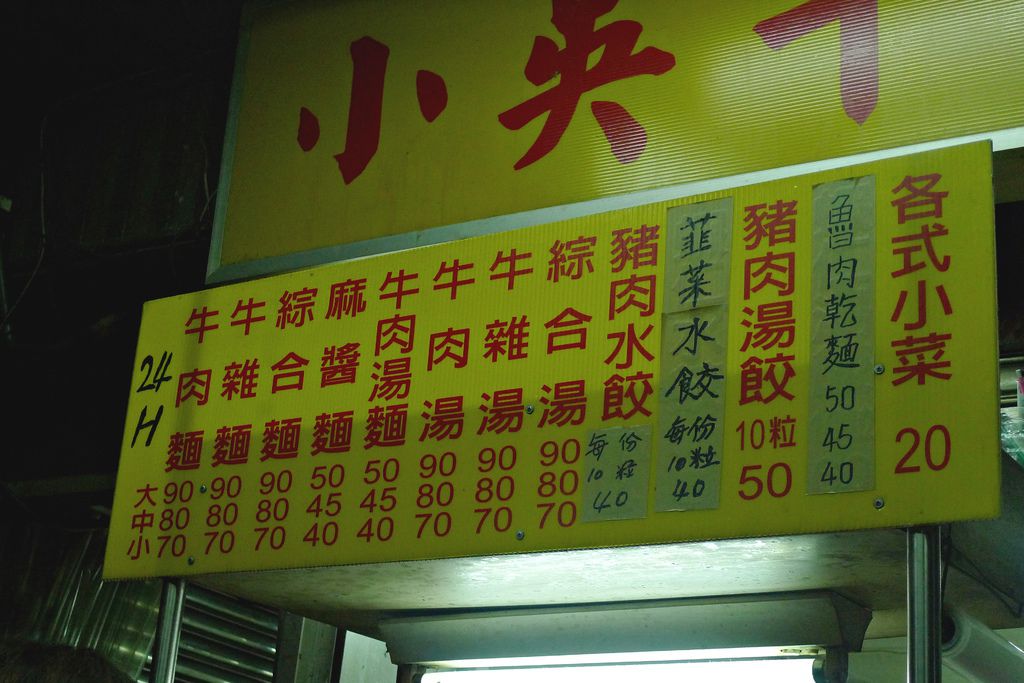 小
24
H
大
中
小
牛肉麵 90 80 70
牛雜麵 90 80 70
綜合麵 90 80 70
麻醬麵 50 45 40
牛肉湯麵 50 45 40
牛肉湯 90 80 70
牛雜湯 90 80 70
綜合湯 90 80 70
豬肉水餃 每份10粒 40
韮菜水餃 每份10粒 40
豬肉湯餃 10粒 50
魯肉乾麵 50 45 40
各式小菜 20